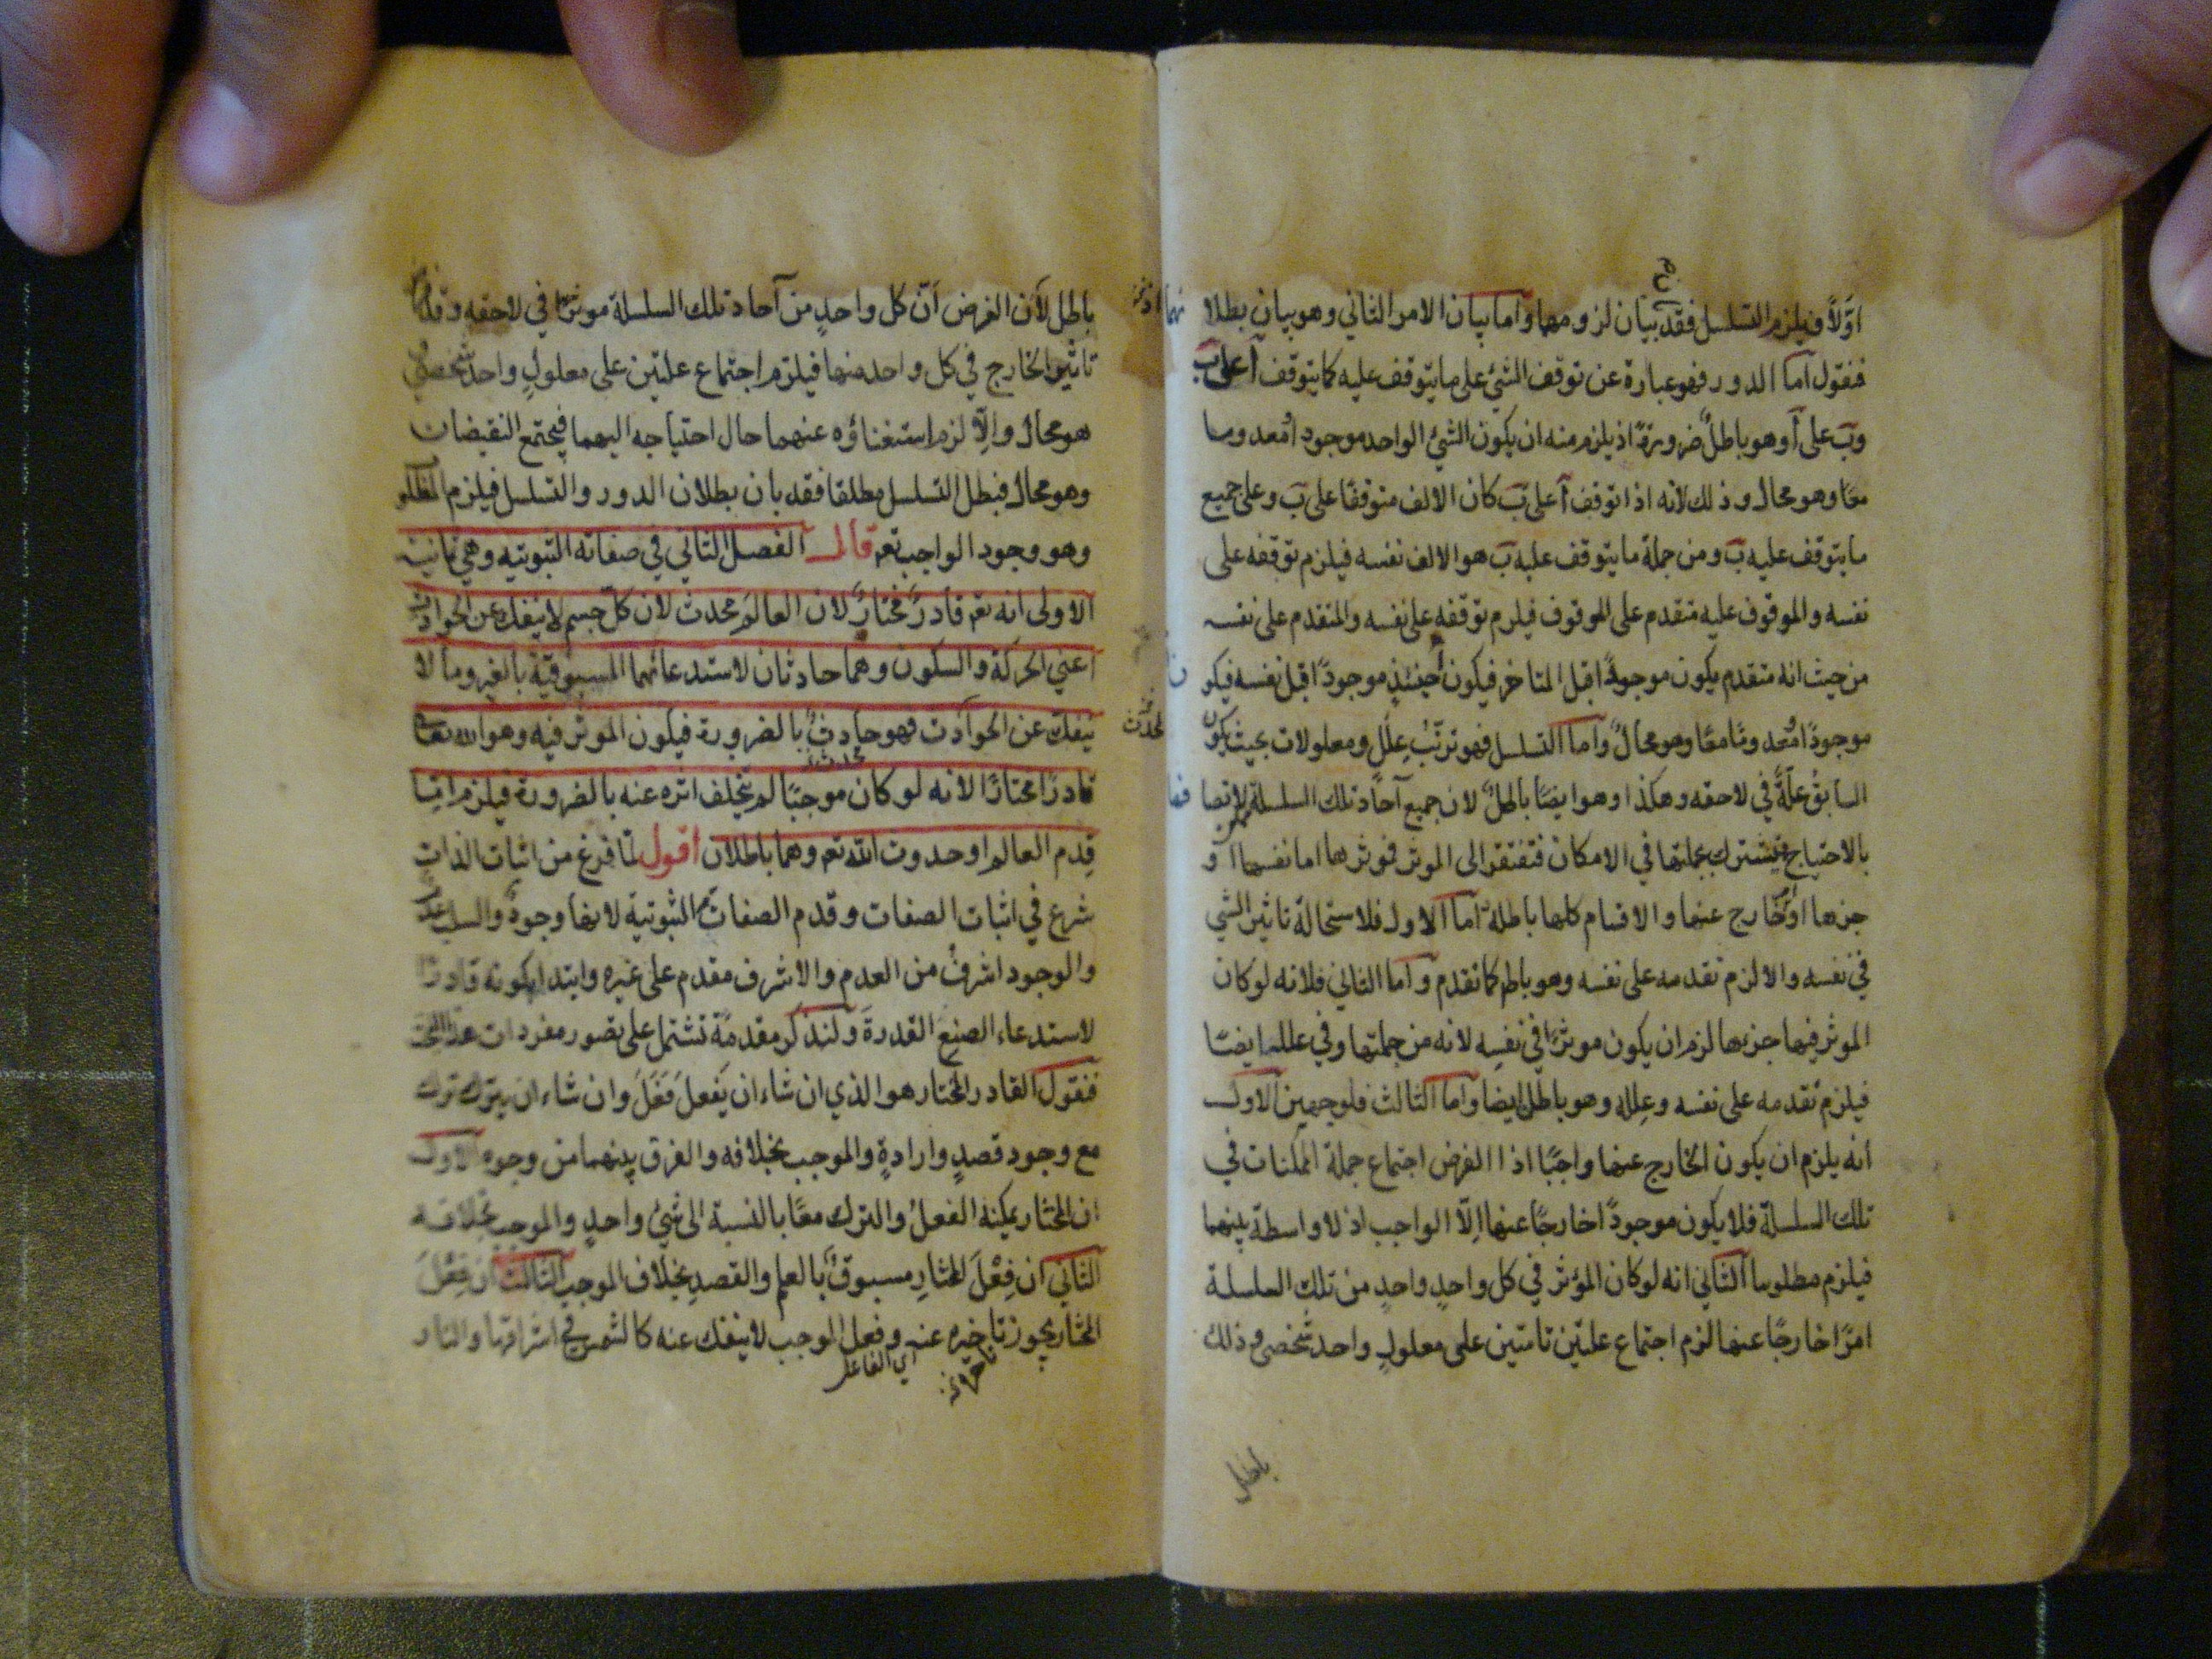 اوّلاً فيلزم التسلسل فقد بيان لزومهما واما بيان الامر الثاني وهو بيان بطلانهما
فنقول اما الدور فهو عبارة عن توقف الشئ على ما يتوقف عليه كما يتوقف آ على ب
وب على آ وهو باطلٌ ضرورةً اذ يلزم منه ان يكون الشئ الواحد موجودًا معدوما
معًا وهو محال وذلك لانه اذا توقف آ على ب كان الالف متوقفا على ب وعلى جميع
ما يتوقف عليه ب ومن جملة ما يتوقف عليه ب هو الالف نفسه فيلزم توقفه على
نفسه والموقوف عليه متقدم على الموقوف فيلزم توقفه على نفسه والمتقدم على نفسه
من حيث انه متقدم يكون موجودًا قبل المتاخر فيكون آ حينئذٍ موجودًا قبل نفسه فيكون
موجودًا معدومًا معًا وهو محالٌ واما التسلسل فهو ترتّب عِلَل ومعلولات بحيث يكون
السابقُ علّةً في لاحقه وهكذا وهو ايضًا باطلٌ لان جميع آحاد تلك السلسلة لاتصافها
بالاحتياج فيشترك بجملتها في الامكان فتفتقر الى الموثر فموثرها اما نفسها او
جزءها او خارج عنها والاقسام كلها باطلة اما الاول فلاستحالة تاثير الشي
في نفسه والا لزم تقدمه على نفسه وهو باطل كما تقدم واما الثاني فلانه لو كان
الموثر فيها جزءها لزم ان يكون موثرًا في نفسِه لانه من جملتها وفي علله ايضًا
فيلزم تقدمه على نفسه وعِلله وهو باطل ايضا واما الثالث فلوجهين الاول
انه يلزم ان يكون الخارج عنها واجبًا اذا الفرض اجتماع جملة الممكنات في
تلك السلسلة فلا يكون موجودًا خارجًا عنها اِلّا الواجب اذ لا واسطة بينهما
فيلزم مطلوبنا الثاني انه لو كان المؤثر في كل واحدٍ واحدٍ من تلك السلسلة
امرًا خارجًا عنها لزم اجتماع علتين تامتين على معلولٍ واحد شخصي وذلك
باطل
باطل لأن الفرض اَنّ كل واحدٍ من آحاد تلك السلسلة موثرًا في لاحقه وقد
تاثير الخارج في كل واحد منها فيلزم اجتماع علتين على معلولٍ واحد شخصي
هو محال واِلّا لزم استغناؤه عنهما حال احتياجه اليهما فيجتمع النقيضان
وهو محال فبطل التسلسل مطلقا فقد بان بطلان الدور والتسلسل فيلزم المطلو
وهو وجود الواجب تعه قال الفصل الثاني في صفاته الثبوتيه وهي ثمانيه
الاولى انه تعه قادرٌ مختارٌ لان العالم محدث لان كلّ جسم لا ينفك عن الحوادث
اعني الحركة والسكون وهما حادثان لاستدعائهما المسبوقية بالغير وما لا
ينفك عن الحوادث فهو حادثٌ بالضرورة فيكون الموثر فيه وهو الله تعالى
قادرًا مختارًا لانه لو كان موجبًا لم يتخلف اثره عنه بالضرورة فيلزم امّا
قِدم العالم او حدوث الله تعه وهما باطلان اقول لمّا فرغ من اثبات الذات
شرع في اثبات الصفات وقدم الصفات الثبوتية لانها وجودٌ والسلب عدم
والوجود اشرفُ من العدم والاشرف مقدم على غيره وابتدا بكونه قادرًا
لاستدعاء الصنع القدرةَ ولنذكر مقدمّة تشتمل على تصور مفردات هذا البحث
فنقول القادر المختار هو الذي ان شاء ان يَفعلَ فَعَلَ وان شاء ان يترك ترك
مع وجود قصدٍ وارادةٍ والموجب بخلافه والفرق بينهما من وجوه الاول
ان المختار يمكنه الفعلُ والترك معًا بالنسبة الى شئ واحدٍ والموجب بخلافه
الثاني ان فِعْلَ المختارِ مسبوقٌ بالعلم والقصدِ بخلاف الموجب الثالث ان فِعْلَ
المختار يجوز تاخيره عنه وفعل الموجب لا ينفك عنه كالشمس في اشراقها والنار
اي الفاعل